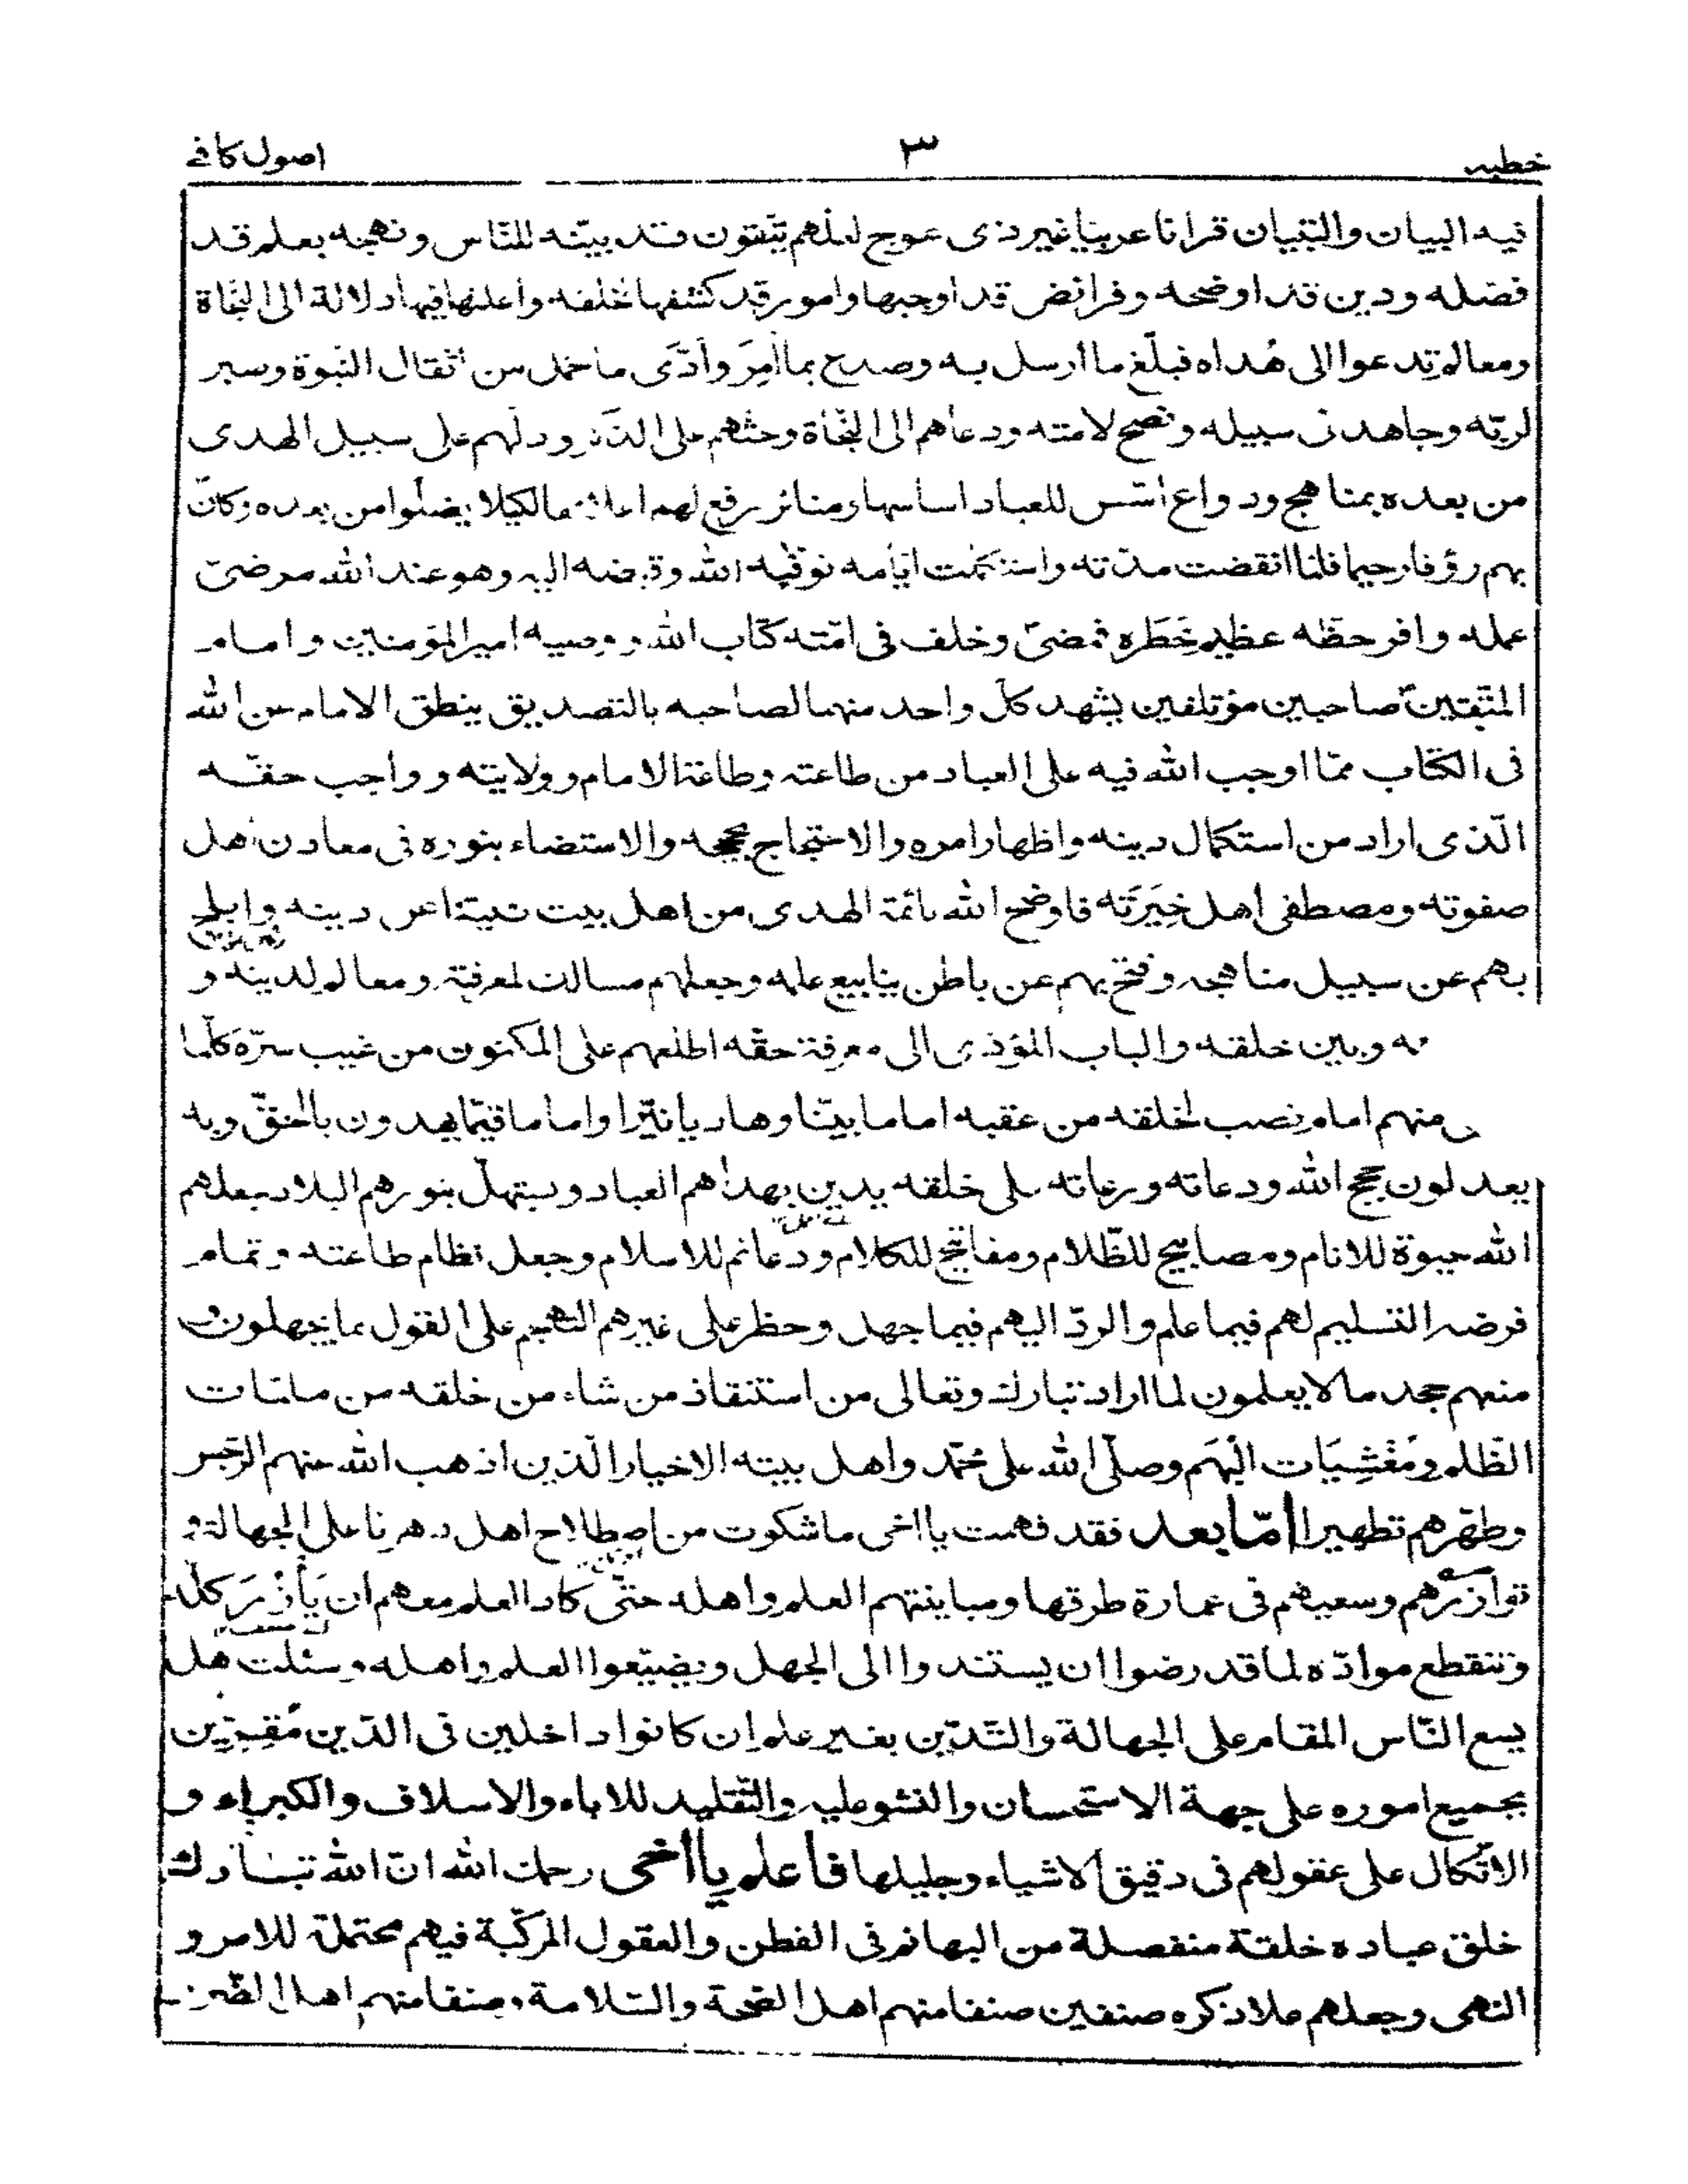 خطبه ٣ اصول كافے
فيه البيان والتبيان قرانا عربيا غير ذى عوج لعلهم يتقون قد بيّنه للنّاس ونهجه بعلم قد
فصّله ودين قد اوضحه وفرائض قد اوجبها وامور قد كشفها لخلقه واعلنها فيها دلالة الى النجاة
ومعالم تدعوا الى هُداه فبلّغ ما ارسل به وصدع بما اُمِرَ وأدّى ما حمل من اثقال النبوة وصبر
لربّه وجاهد فى سبيله ونصح لامته ودعاهم الى النجاة وحثهم على الذكر ودلهم على سبيل الهدى
من بعده بمناهج ودواع اسّس للعباد اساسها ومنائر رفع لهم اعلامها لكيلا يضلّوا من بعده وكان
بهم رؤفا رحيما فلمّا انقضت مدّته واستكملت ايّامه توفّيه الله وقبضه اليه وهو عند الله مرضىّ
عمله وافر حظّه عظيم خَطَره فمضىّ وخلف فى امّته كتاب الله ووصيه امير المؤمنين وامام
المتّقين صاحبين مؤتلفين يشهد كلّ واحد منهما لصاحبه بالتصديق ينطق الامام عن الله
فى الكتاب ممّا اوجب الله فيه على العباد من طاعته وطاعة الامام وولايته وواجب حقّه
الّذى اراد من استكمال دينه واظهار امره والاحتجاج بحججه والاستضاء بنوره فى معادن اهل
صفوته ومصطفى اهل خِيَرَته فاوضح الله بائمة الهدى من اهل بيت نبيّنا عن دينه وابلج
بهم عن سبيل مناهجه وفتح بهم عن باطن ينابيع علمه وجعلهم مسالك لمعرفته ومعالم لدينه و
ه وبين خلقه والباب المؤدّى الى معرفة حقّه اطلعهم على المكنون من غيب سرّه كلّما
منهم امام نصب لخلقه من عقبه اماما بيّنا وهاديا نيّرا واماما قيّما يهدون بالحقّ وبه
يعدلون حجج الله ودعاته ورعاته على خلقه يدين بهداهم العباد ويستهلّ بنورهم البلاد جعلهم
الله حيوة للانام ومصابيح للظّلام ومفاتيح للكلام ودعائم للاسلام وجعل نظام طاعته وتمام
فرضه التسليم لهم فيما علم والردّ اليهم فيما جهل وحظر على غيرهم التهجم على القول بما يجهلون و
منعهم جحد ما لا يعلمون لما اراد تبارك وتعالى من استنقاذ من شاء من خلقه من ملمّات
الظّلم ومُغْشِيَات البُهَم وصلّى الله على محمّد واهل بيته الاخيار الّذين اذهب الله عنهم الرّجس
وطهّرهم تطهيرا امّا بعد فقد فهمت يا اخى ما شكوت من اصطلاح اهل دهرنا على الجهالة و
توازرهم وسعيهم فى عمارة طرقها ومباينتهم العلم واهله حتّى كاد العلم معهم ان يَأْزِرَ كلّه
وتنقطع موادّه لما قد رضوا ان يستندوا الى الجهل ويضيّعوا العلم واهله وسئلت هل
يسع النّاس المقام على الجهالة والتّديّن بغير علم ان كانوا داخلين فى الدّين مُقِرّين
بجميع اموره على جهة الاستحسان والنشو عليه والتّقليد للاباء والاسلاف والكبراء و
الاتّكال على عقولهم فى دقيق الاشياء وجليلها فاعلم يا اخى رحمك الله انّ الله تبارك
خلق عباده خلقة منفصلة من البهائم فى الفطن والعقول المركّبة فيهم محتملة للامر و
النهى وجعلهم جلّ ذكره صنفين صنفا منهم اهل الصّحة والسّلامة وصنفا منهم اهل الضّرر